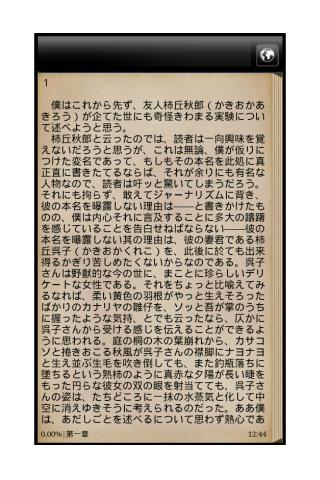 1
僕はこれから先ず、友人柿丘秋郎（かきおかあ
きろう）が企てた世にも奇怪きわまる実験につい
て述べようと思う。
柿丘秋郎と云ったのでは、読者は一向興味を覚
えないだろうと思うが、これは無論、僕が仮りに
つけた変名であって、もしもその本名を此処に真
正直に書きたてるならば、それが余りにも有名な
人物なので、読者は吁ッと驚いてしまうだろう。
それにも拘らず、敢えてジャーナリズムに背き、
彼の本名を曝露しない理由は――と書きかけたも
のの、僕は内心それに言及することに多大の躊躇
を感じていることを告白せねばならない――彼の
本名を曝露しない其の理由は、彼の妻君である柿
丘呉子（かきおかくれこ）を、此後に於ても出来
得るかぎり苦しめたくないからなのである。呉子
さんは野獣的な今の世に、まことに珍らしいデリ
ケートな女性である。それをちょっと比喩えてみ
るなれば、柔い黄色の羽根がやっと生えそろった
ばかりのカナリヤの雛仔を、ソッと吾が掌のうち
に握ったような気持、とでも云ったなら、仄かに
呉子さんから受ける感じを伝えることができるよ
うに思われる。庭の桐の木の葉崩れから、カサコ
ソと捲きおこる秋風が呉子さんの襟脚にナヨナヨ
と生え並ぶ生毛を吹き倒しても、また釣瓶落ちに
墜ちるという熟柿のように真赤な夕陽が長い睫を
もった円らな彼女の双の眼を射当てても、呉子さ
んの姿は、たちどころに一抹の水蒸気と化して中
空に消えゆきそうに考えられるのだった。ああ僕
は、あだしごとを述べるについて思わず熱心であ
0.00%|第一章
12:44